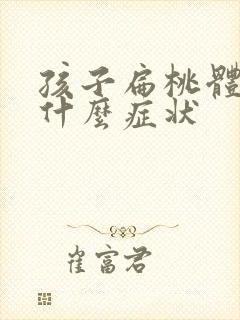 孩子扁桃體
什麼症狀
崔富君